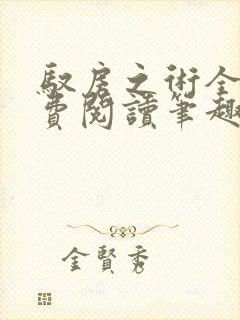 馭房之術全
費閱讀筆趣
金賢秀